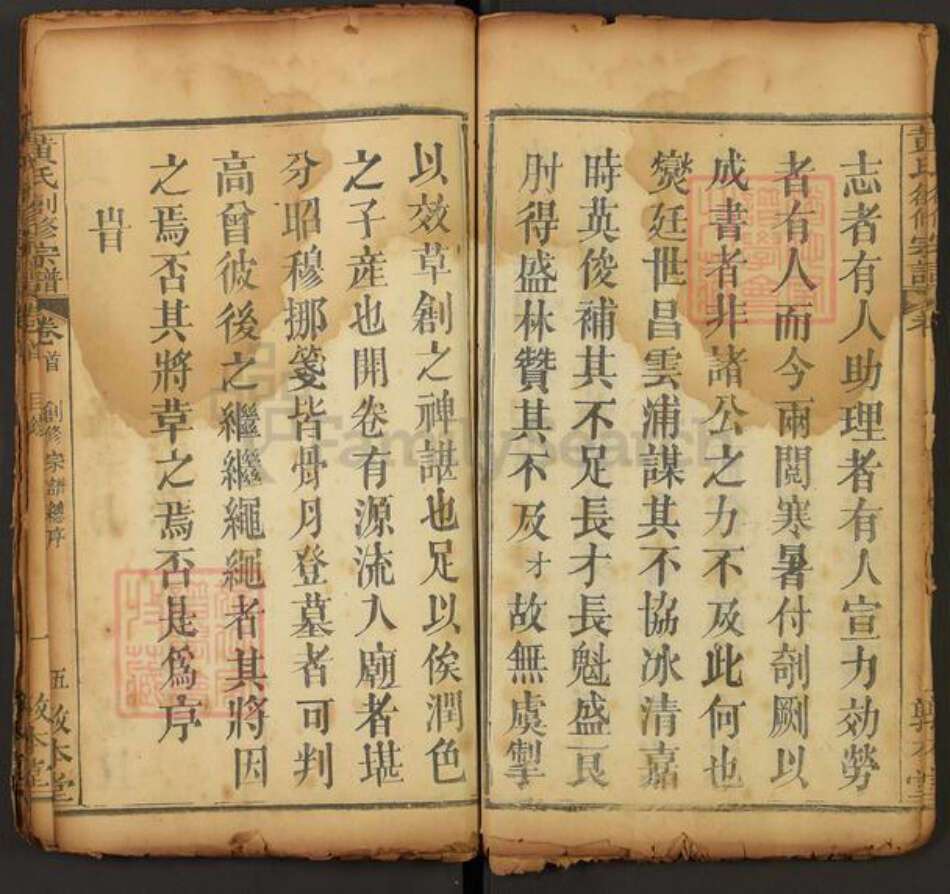 志者有人助理者有人宣力効勞
者有人而今兩閱寒暑付剞劂以
成書者非諸公之力不及此何也
爕廷世昌雲浦謀其不協冰清嘉
時英俊補其不足長才長魁盛艮
肘得盛林贊其不及才故無虞掣
以效草創之神諶也足以俟潤色
之子產也開卷有源流入廟者堪
分昭穆挪箋皆骨月登墓者可判
高曾彼後之繼繼繩繩者其將因
之焉否其將草之焉否是為序
旹
黃氏創修宗譜 卷首 創修宗譜總序 五 敦本堂
FamilySearch